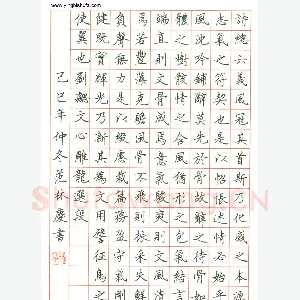 www.yingbishufa.com
詩總六義風冠其首斯乃化感之本源
志氣之符契也是以怊悵述情必始乎
風沈吟鋪辭莫先於骨故辭之待骨如
體之樹骸情之含風猶形之包氣結言
端直則文骨成焉意氣駿爽則文風清
焉若豐藻克贍風骨不飛則振采失鮮
負聲無力是以綴慮裁篇務盈守氣剛
健既實輝光乃新其為文用譬征鳥之
使翼也 劉勰文心雕龍選段
己巳年仲冬范林慶書